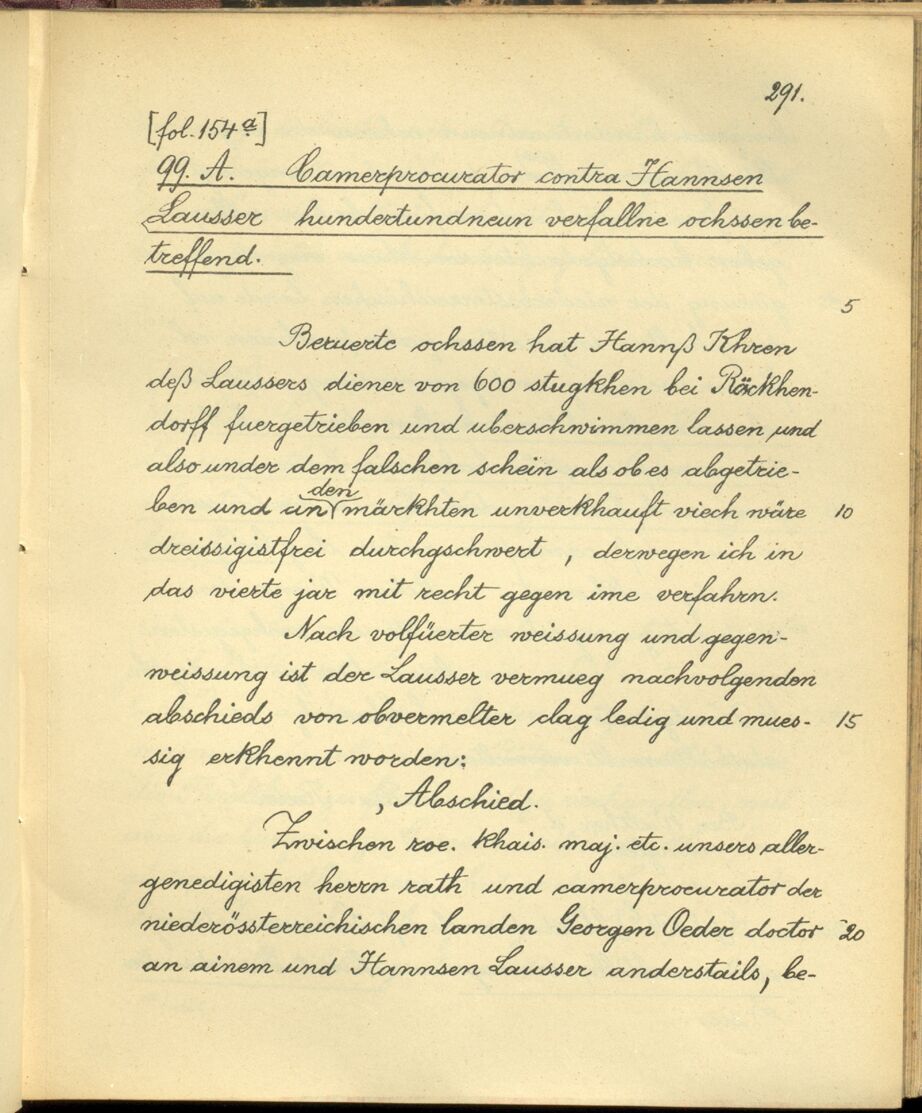 291.
[fol. 154a]
99. A. Camerprocurator contra Hannsen
Lausser hundertundneun verfallne ochssen be-
treffend.
5
Beruerte ochssen hat Hannß Khren
deß Laussers diener von 600 stugkhen bei Röckhen-
dorff fuergetrieben und uberschwimmen lassen und
also under dem falschen schein als ob es abgetrie-
den
ben und an märkhten unverkhauft viech wäre 10
dreissigistfrei durchgschwert, derwegen ich in
das vierte jar mit recht gegen ime verfahrn.
Nach volfüerter weissung und gegen-
weissung ist der Lausser vermueg nachvolgenden
abschieds von obvermelter clag ledig und mues- 15
sig erkhennt worden:
, Abschied.
Zwischen roe. khais. maj. etc. unsers aller-
genedigisten herrn rath und camerprocurator der
niederössterreichischen landen Georgen Oeder doctor 20
an ainem und Hannsen Lausser anderstails, be-